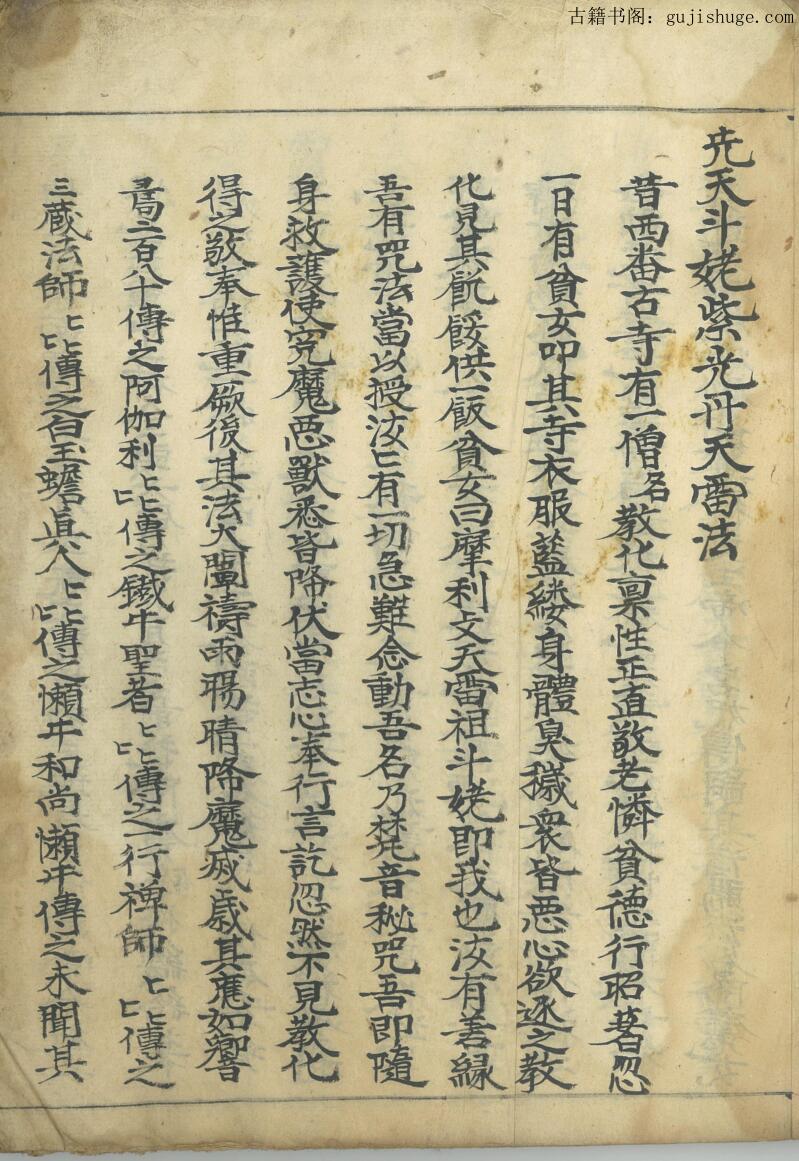 古籍书阁：gujishuge.com
先天斗姥紫光丹天雷法
昔西番古寺有一僧名教化稟性正直敬老憐貧德行昭著忽
一日有貧女叩其寺衣服藍縷身體臭穢衆皆惡心欲逐之教
化見其飢餒供一飯貧女曰摩利支天雷祖斗姥即我也汝有善緣
吾有咒法當以授汝匕有一切急難念動吾名乃梵音秘咒吾即隨
身救護使冤魔惡獸悉皆降伏當志心奉行言訖忽然不見教化
得之敬奉惟重厥後其法大闡禱雨暘晴降魔滅其應如響
焉二百八十傳之阿伽利匕匕匕傳之鐵牛聖者匕匕匕傳之一行禅師匕匕匕傳之
三蔵法師匕匕匕傳之白玉蟾真人匕匕匕傳之懶牛和尚懶牛傳之未聞其